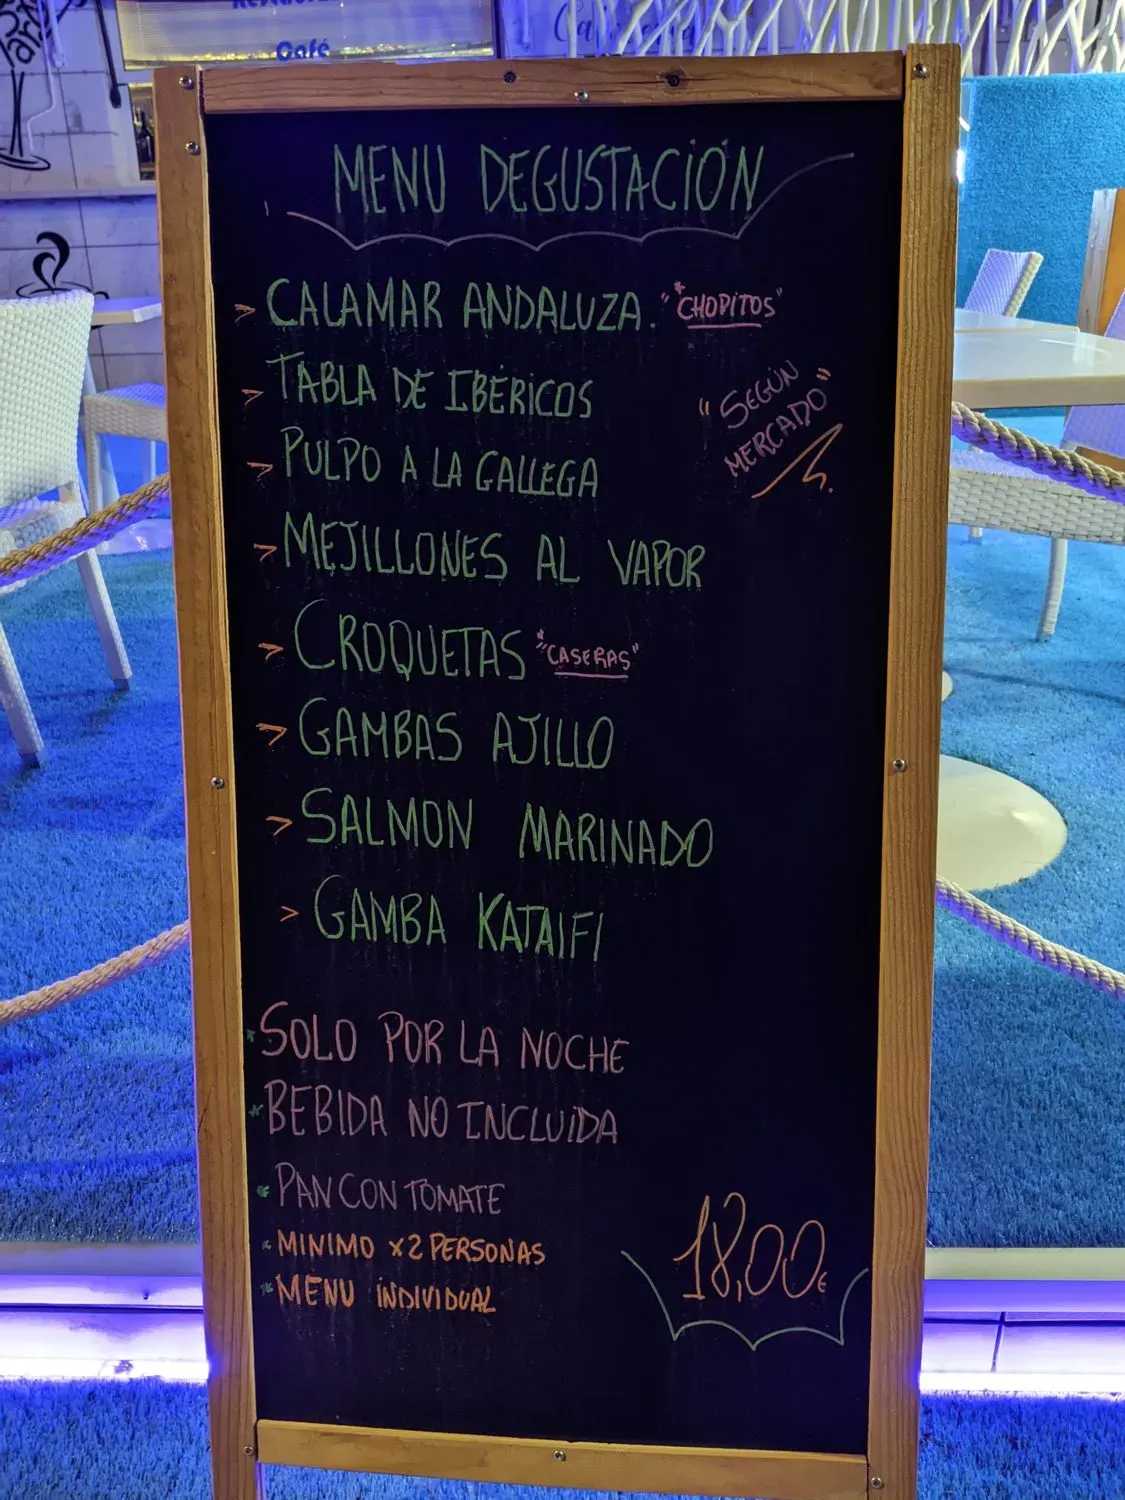 Café
MENU DEGUSTACIÓN
> CALAMAR ANDALUZA. "CHOPITOS"
> TABLA DE IBÉRICOS
"SEGÚN
MERCADO"
> PULPO A LA GALLEGA
> MEJILLONES AL VAPOR
> CROQUETAS "CASERAS"
> GAMBAS AJILLO
> SALMON MARINADO
> GAMBA KATAIFI
* SOLO POR LA NOCHE
* BEBIDA NO INCLUIDA
* PAN CON TOMATE
* MINIMO X2 PERSONAS
* MENU INDIVIDUAL
18,00€